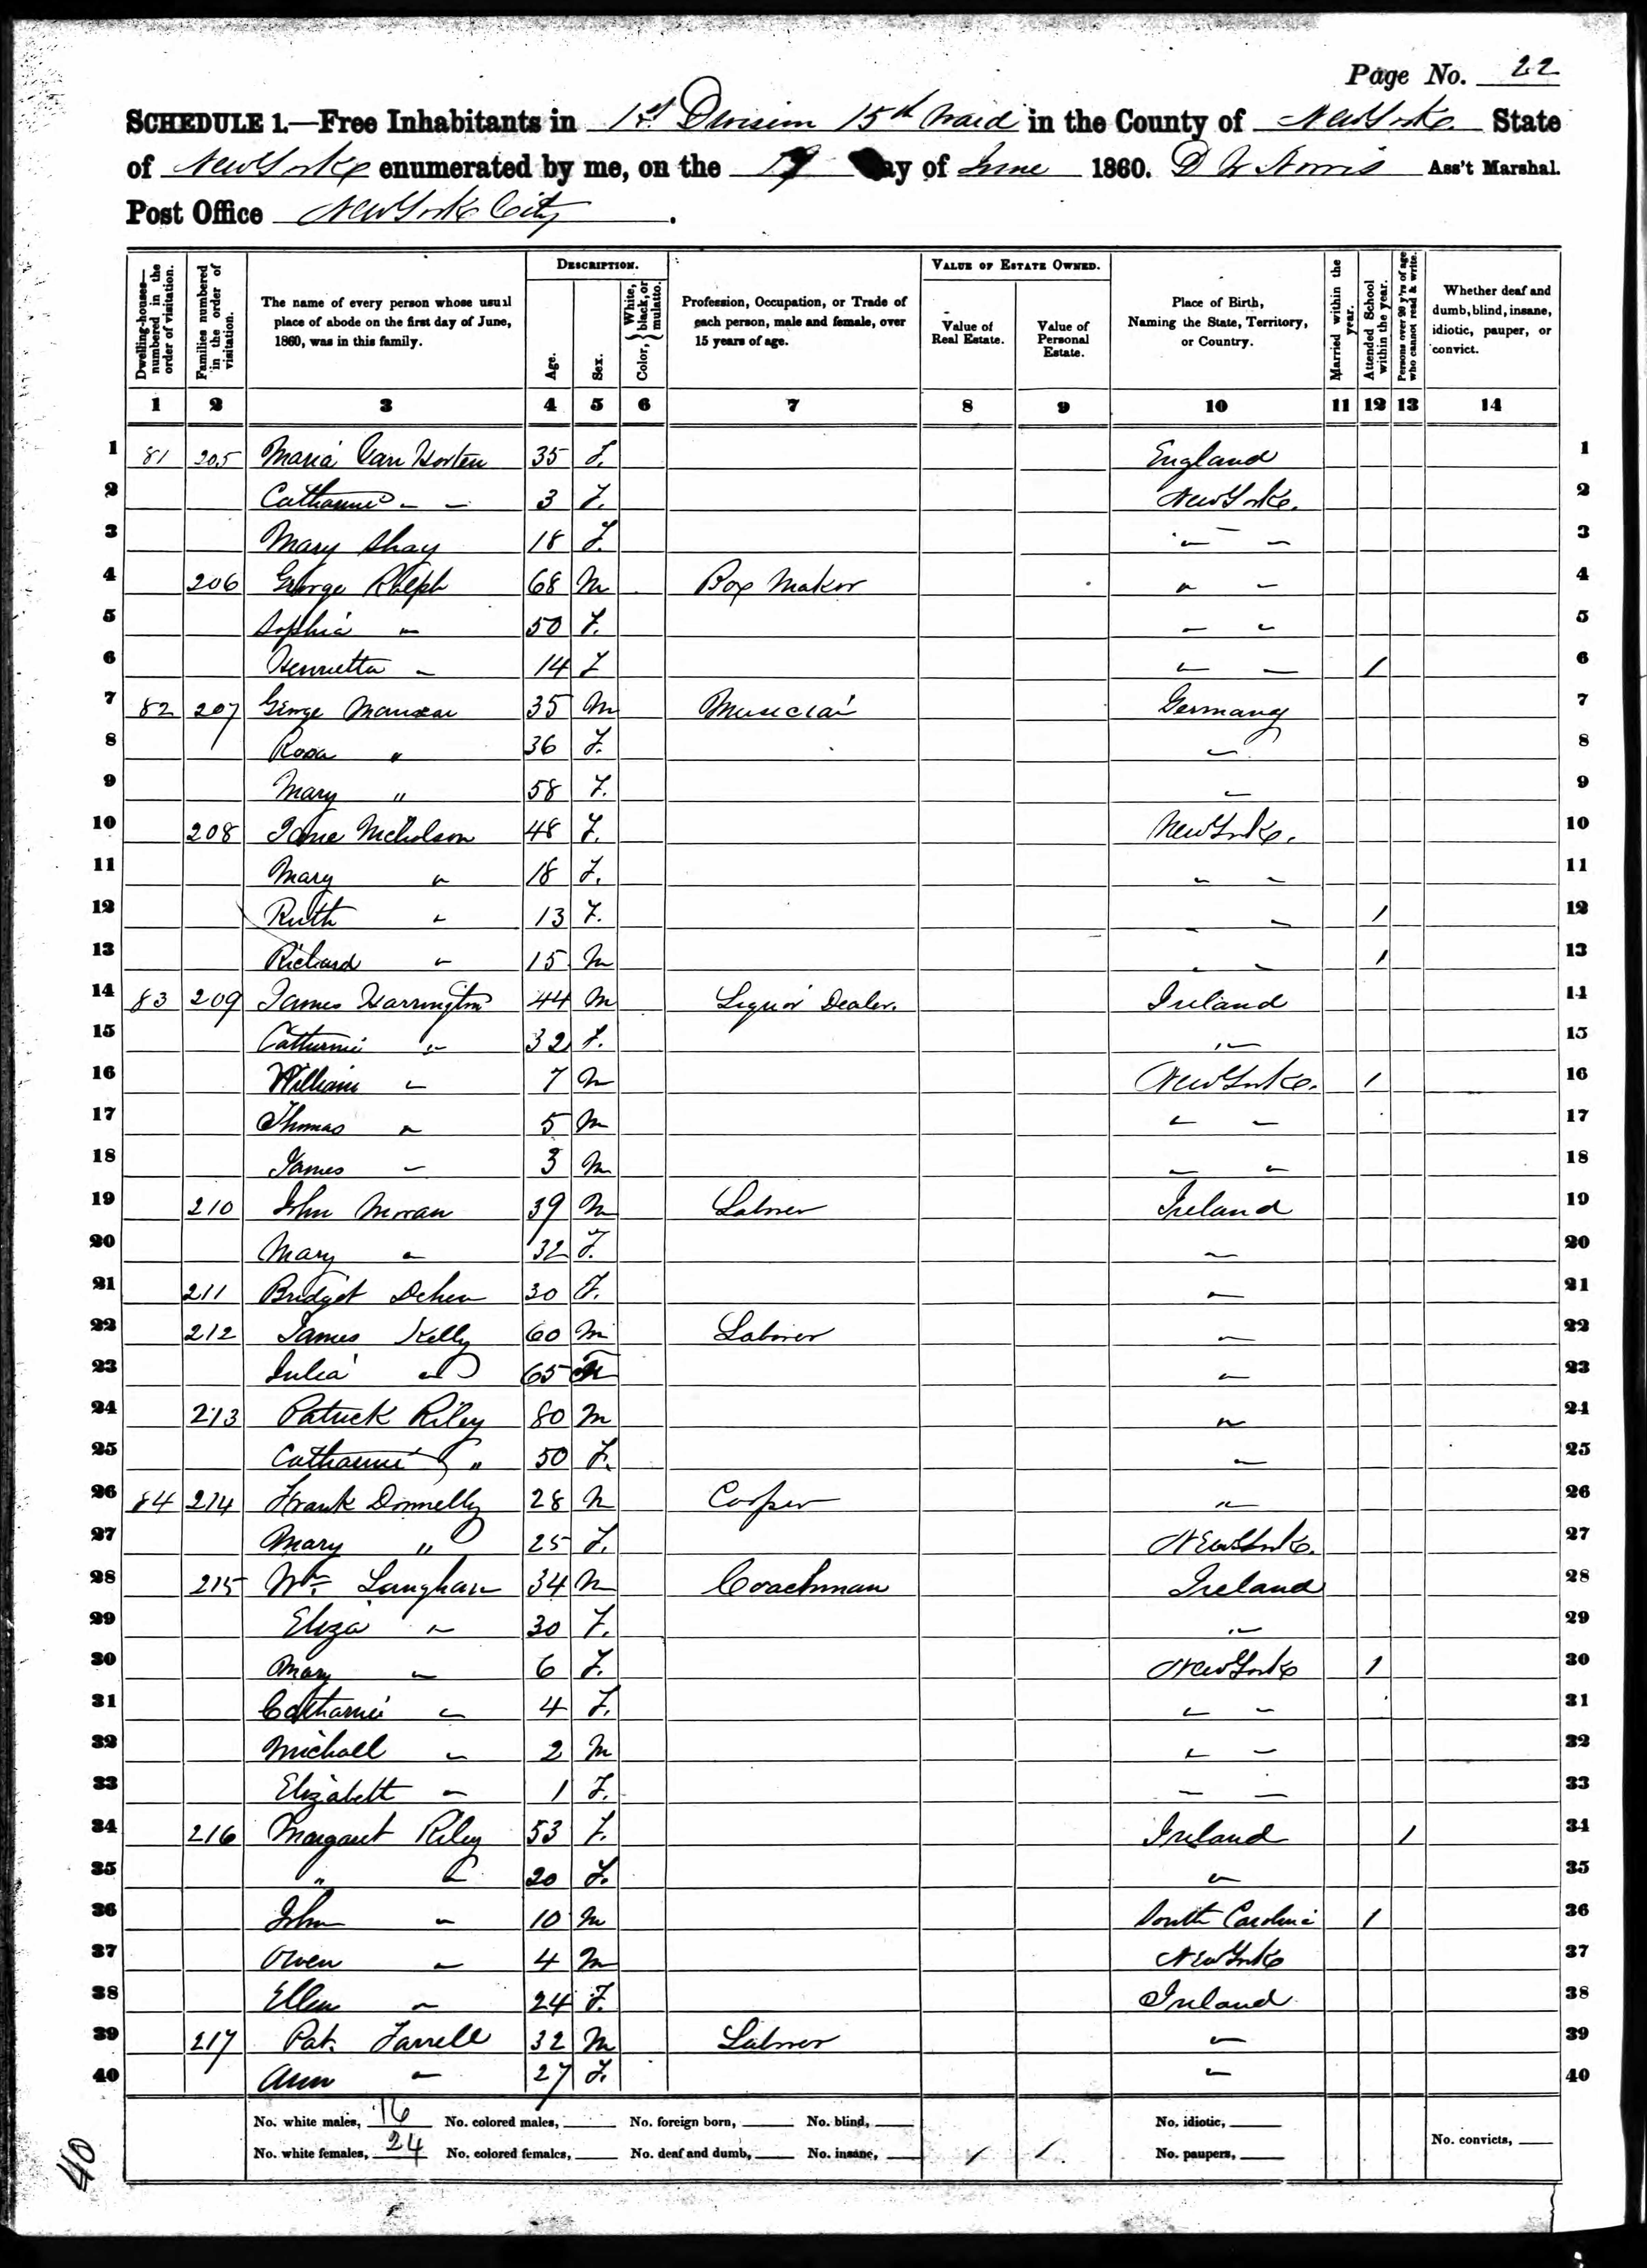 Page No. 22
SCHEDULE 1.—Free Inhabitants in 1st Division 15th Ward in the County of New York State
of New York enumerated by me, on the 19 day of June 1860. D W Norris Ass't Marshal.
Post Office New York City.
DESCRIPTION. VALUE OF ESTATE OWNED.
Dwelling-houses—numbered in the order of visitation. Families numbered in the order of visitation. The name of every person whose usual place of abode on the first day of June, 1860, was in this family. Age. Sex. Color, {White, black, or mulatto. Profession, Occupation, or Trade of each person, male and female, over 15 years of age. Value of Real Estate. Value of Personal Estate. Place of Birth, Naming the State, Territory, or Country. Married within the year. Attended School within the year. Persons over 20 y'rs of age who cannot read & write. Whether deaf and dumb, blind, insane, idiotic, pauper, or convict.
1 2 3 4 5 6 7 8 9 10 11 12 13 14
1 81 205 Maria Van Horten 35 F. England 1
2 Catharine " " 3 F. New York. 2
3 Mary Shay 18 F. " " 3
4 206 George Rolph 68 M Box Maker " " 4
5 Sophia " 50 F. " " 5
6 Henrietta " 14 F " " 1 6
7 82 207 George 35 M Musician Germany 7
8 Rosa " 36 F. " 8
9 Mary " 58 F. " 9
10 208 Jane Nicholson 48 F. New York. 10
11 Mary " 18 F. " " 11
12 Ruth " 13 F. " " 1 12
13 Richard " 15 M " " 1 13
14 83 209 James Harrington 44 M Liquor Dealer. Ireland 14
15 Catharine " 32 F. " 15
16 William " 7 M New York. 1 16
17 Thomas " 5 M " " 17
18 James " 3 M " " 18
19 210 John Moran 39 M Laborer Ireland 19
20 Mary " 32 F. " 20
21 211 Bridget 30 F. " 21
22 212 James Kelly 60 M Laborer " 22
23 Julia " 65 F " 23
24 213 Patrick Riley 80 M " 24
25 Catharine " 50 F. " 25
26 84 214 Frank Donnelly 28 M Cooper " 26
27 Mary " 25 F. New York. 27
28 215 Wm. Langhan 34 M Coachman Ireland 28
29 Eliza " 30 F. " 29
30 Mary " 6 F. New York 1 30
31 Catharine " 4 F. " " 31
32 Michall " 2 M " " 32
33 Elizabeth " 1 F. " " 33
34 216 Margaret Riley 53 F. Ireland 1 34
35 " " 20 F. " 35
36 John " 10 M South Carolina 1 36
37 Owen " 4 M New York 37
38 Ellen " 24 F. Ireland 38
39 217 Pat. Farrell 32 M Laborer " 39
40 Ann " 27 F. " 40
No. white males, 16 No. colored males, No. foreign born, No. blind, No. idiotic,
No. white females, 24 No. colored females, No. deaf and dumb, No. insane, / / No. paupers, No. convicts,
40